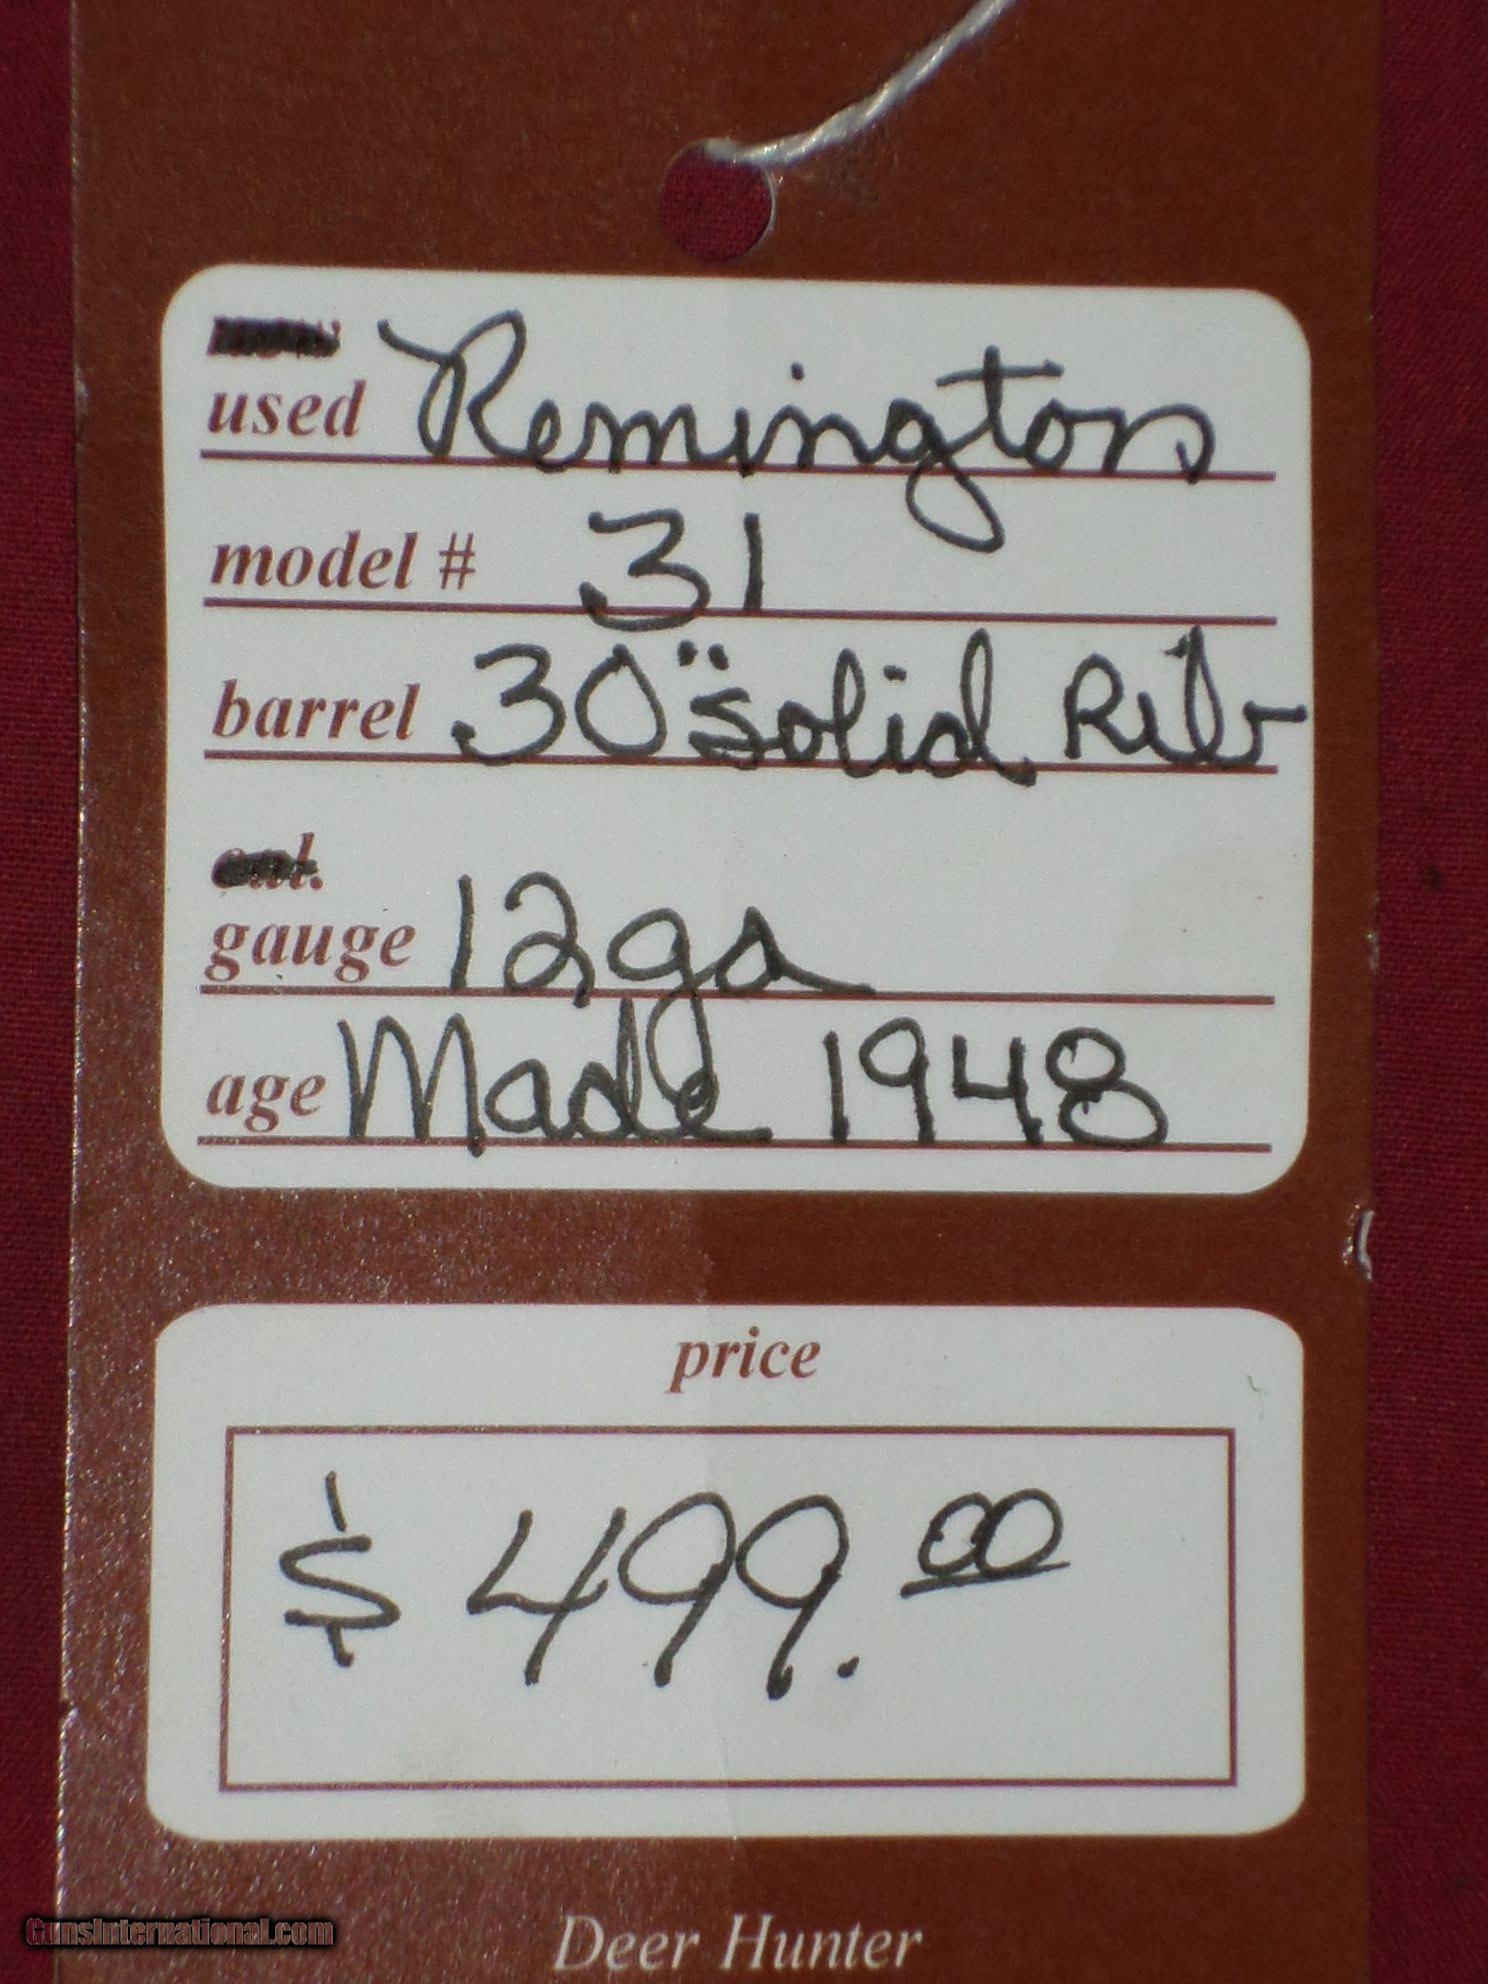 used Remington
model # 31
barrel 30" solid Rib
cal.
gauge 12ga
age Made 1948
price
$ 499.00
Deer Hunter
GunsInternational.com